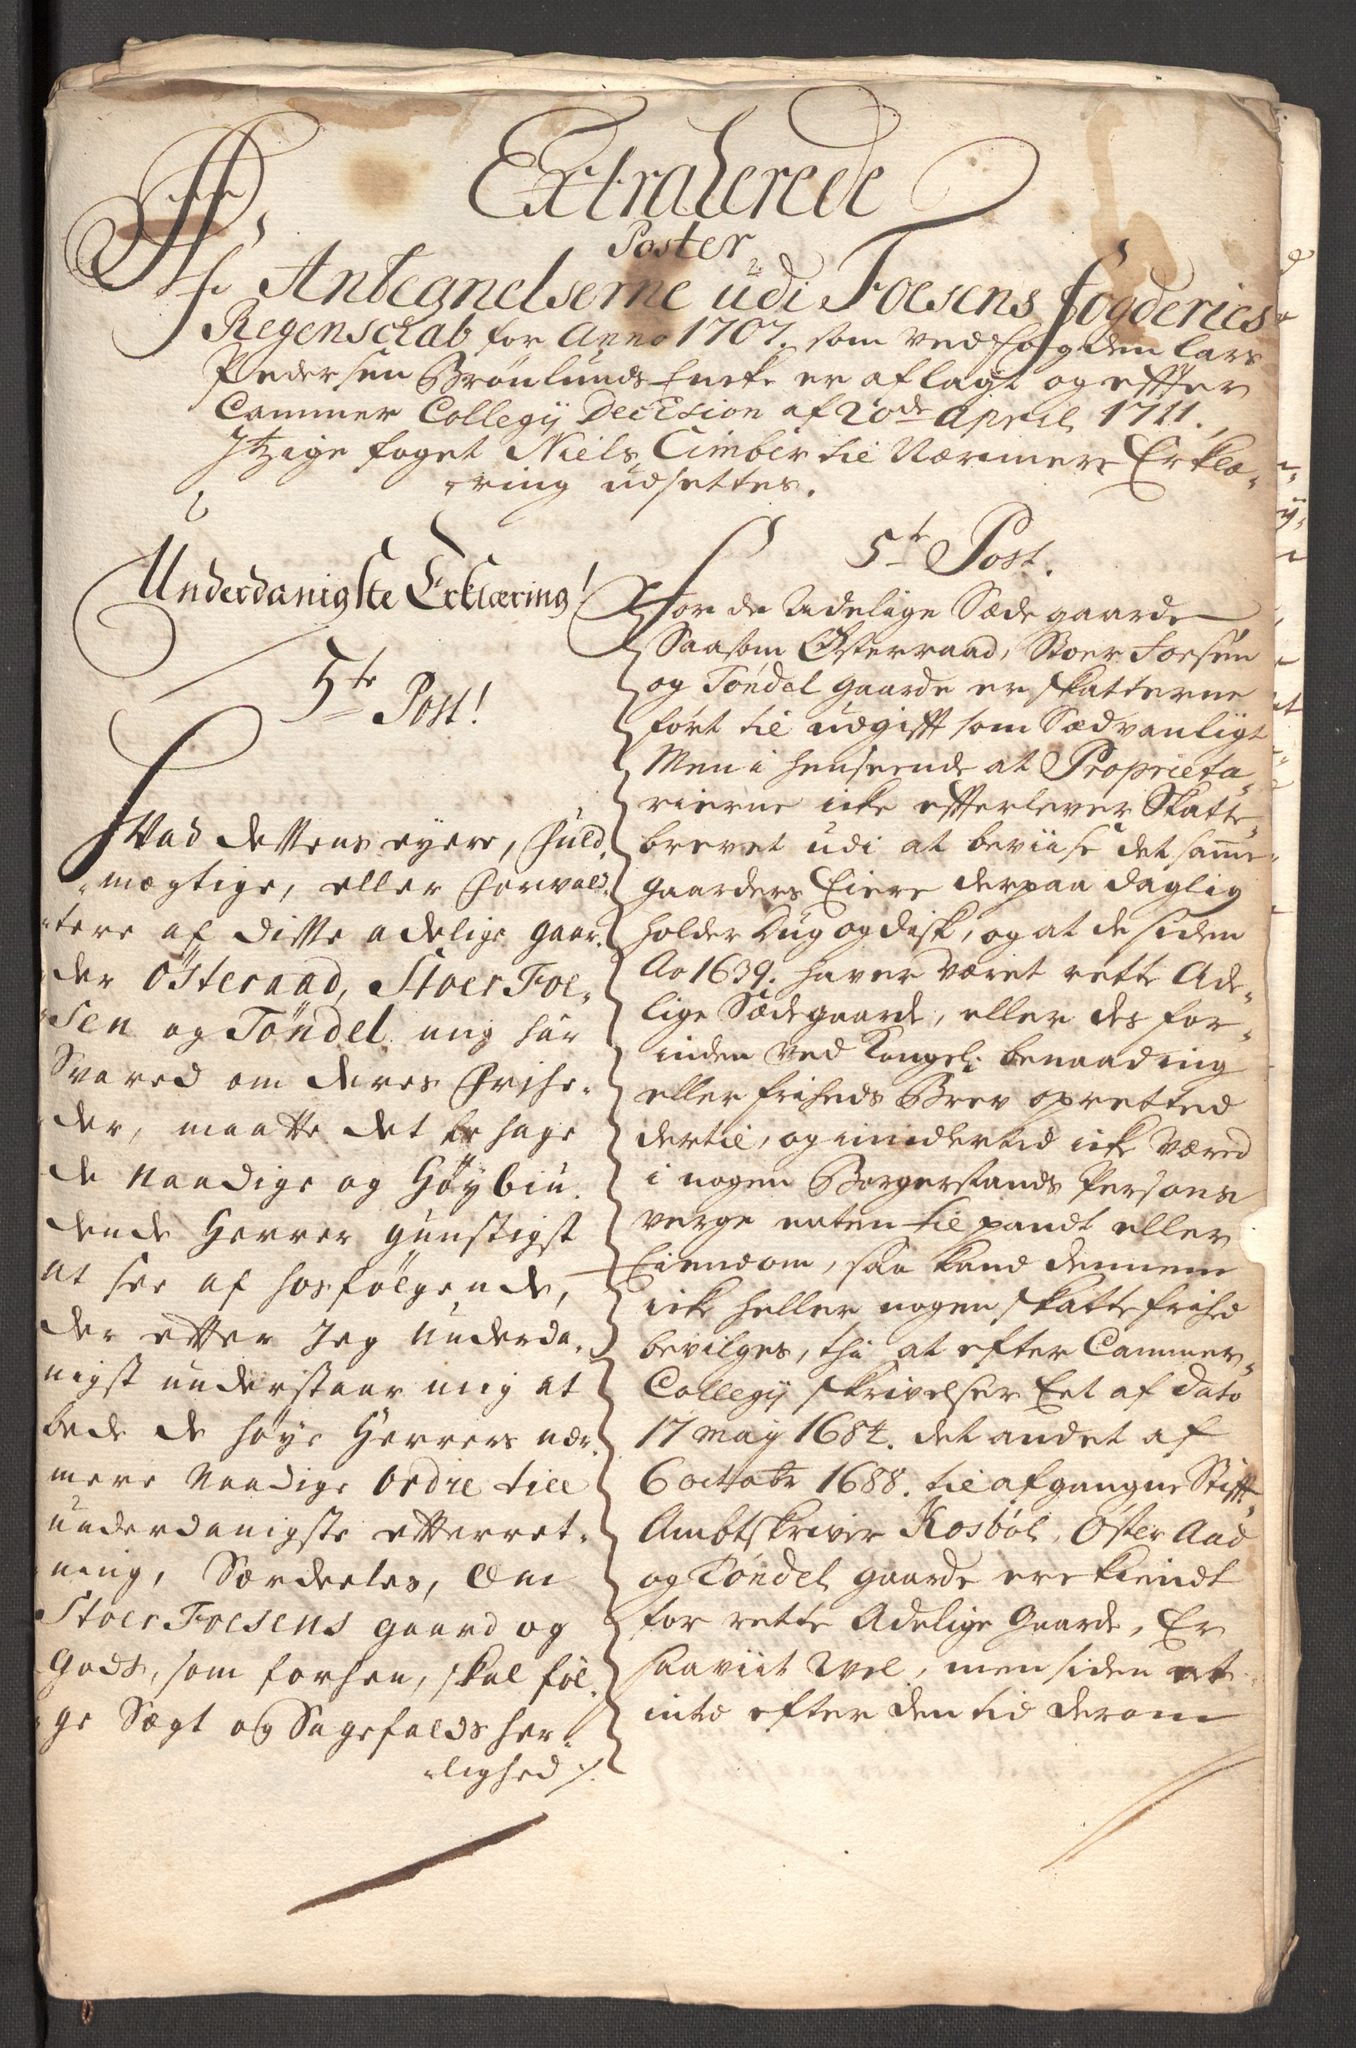 Extraherede
Poster
Af Antegnelserne udi Foesens fogderies
Regenschab for Anno 1707. som ved fogden Lars
Pedersen Brönlunds Encke er aflagt og effter
Cammer Collegij Decision af 20de April 1711.
Itzige foget Niels Cimber til Nærmere Erklæ-
ring udsettes.
Underdanigste Erklæring!
5te Post!
Hvad dettens eyere, fuld-
mægtige, eller forvald-
tere af disse adelige gaar-
der Østeraad, Stoer Foe-
sen og Töndel mig har
Svared om deres frihe-
der, maatte det behage
de Naadige og Höybiu-
dende Herrer gunstigst
at see af hosfölgende,
der effter Jeg underda-
nigst understaar mig at
bede de höye Herrers nær-
mere Naadige Ordre till
underdanigste efterret-
ning, Særdeeles, Om
Stoer Foesens gaard og
gods, som forhen, skal föl-
ge Sægt og Sagefalds her-
lighed /.
5te Post.
For de Adelige Sæde gaarde
Saasom Østerraad, Stoer Foesen
og Töndel gaarde er skatterne
fört til udgifft som Sædvanligt
Men i henseende at Proprieta-
rierne icke effterlever Skatte-
brevet udi at beviise det samme
gaarders Eiere derpaa daglig
holder Dug og disk, og at de siden
Ao 1639. haver været rette Ade-
lige Sædegaarde, eller des for-
inden ved Kongel: benaading
eller friheds Brev opretted
dertil, og imidlertid icke Været
i nogen Borgerstands Persons
verge enten til pandt eller
Eiendom, saa kand dennem
icke heller nogen skatte frihed
bevilges, thi at efter Cammer-
Collegij skrivelser Eet af dato
17 Maij 1684. det andet af
6 octobr 1688. til afgangne Stift
Ambtskriver Rosböl, Öster Aad
og Töndel gaarde er kiendt
for rette Adelige Gaarde, Er
saaviit Vel, men siden at
intet efter den tid derom